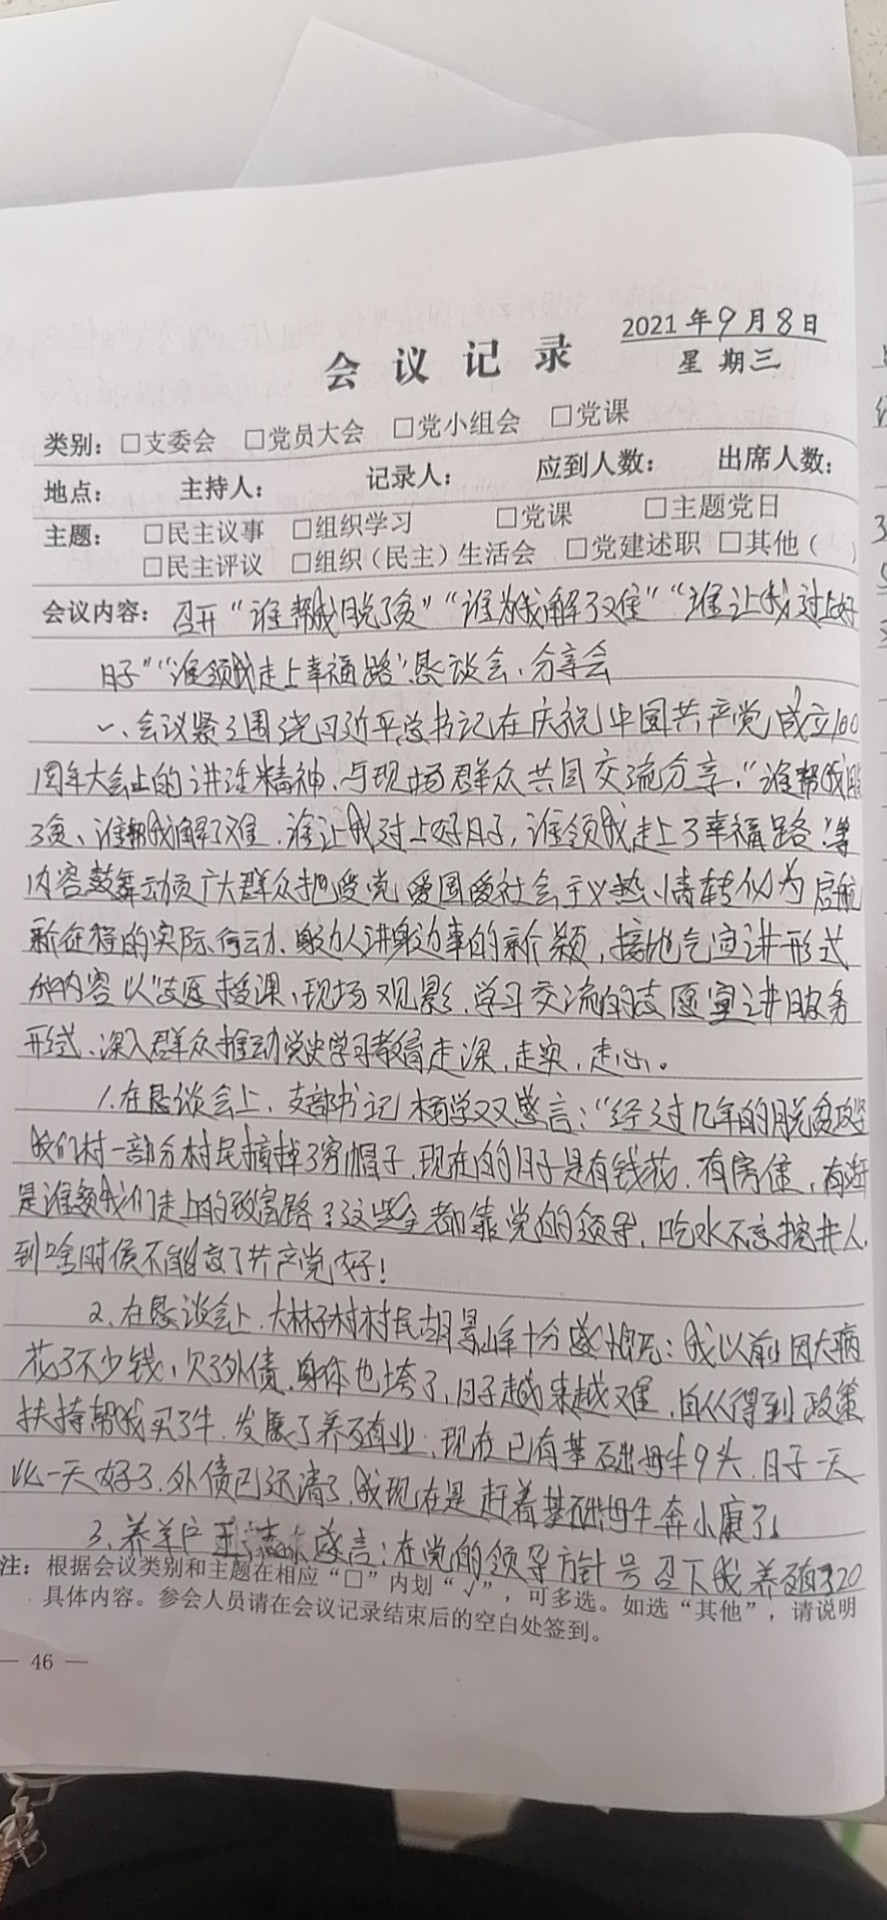 2021年9月8日
会议记录 星期三
类别：□支委会 □党员大会 □党小组会 □党课
地点： 主持人： 记录人： 应到人数： 出席人数：
主题： □民主议事 □组织学习 □党课 □主题党日
□民主评议 □组织（民主）生活会 □党建述职 □其他（ ）
会议内容：召开“谁帮我脱了贫”“谁为我解了难”“谁让我过上好
日子”“谁领我走上幸福路”恳谈会、分享会
一、会议紧紧围绕习近平总书记在庆祝中国共产党成立100
周年大会上的讲话精神、与现场群众共同交流分享，“谁帮我脱
了贫、谁帮我解了难、谁让我过上好日子，谁领我走上了幸福路”等
内容鼓舞动员广大群众把爱党爱国爱社会主义热情转化为启航
新征程的实际行动、身边人讲身边事的新颖，接地气宣讲形式
和内容以“志愿授课、现场观影、学习交流的志愿宣讲服务
形式、深入群众推动党史学习教育走深，走实，走心。
1.在恳谈会上，支部书记杨学双感言：“经过几年的脱贫攻坚
我们村一部分村民摘掉了穷帽子，现在的日子是有钱花，有房住，有
是谁领我们走上的致富路？这些全都靠党的领导，吃水不忘挖井人，
到啥时侯不能忘了共产党好！
2、在恳谈会上，大林子村村民胡景峰十分感慨：我以前因大病
花了不少钱，欠了外债，身体也垮了，日子越来越难，自从得到政策
扶持帮我买了牛，发展了养殖业，现在已有基础母牛9头，日子一天
比一天好了，外债已还清了，我现在是赶着基础母牛奔小康了。
3、养羊户王 感言：在党的领导方针号召下我养殖320
注：根据会议类别和主题在相应“□”内划“√”，可多选。如选“其他”，请说明
具体内容。参会人员请在会议记录结束后的空白处签到。
— 46 —